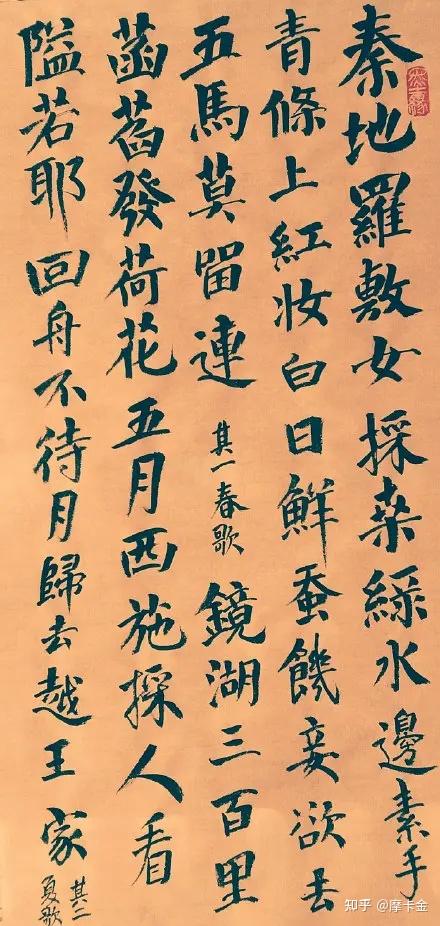 秦地羅敷女採桒綠水邊素手
青條上紅妝白日鮮蚕饑妾欲去
五馬莫留連 其一春歌 鏡湖三百里
菡萏發荷花五月西施採人看
隘若耶回舟不待月歸去越王家 其二夏歌
知乎 @摩卡金